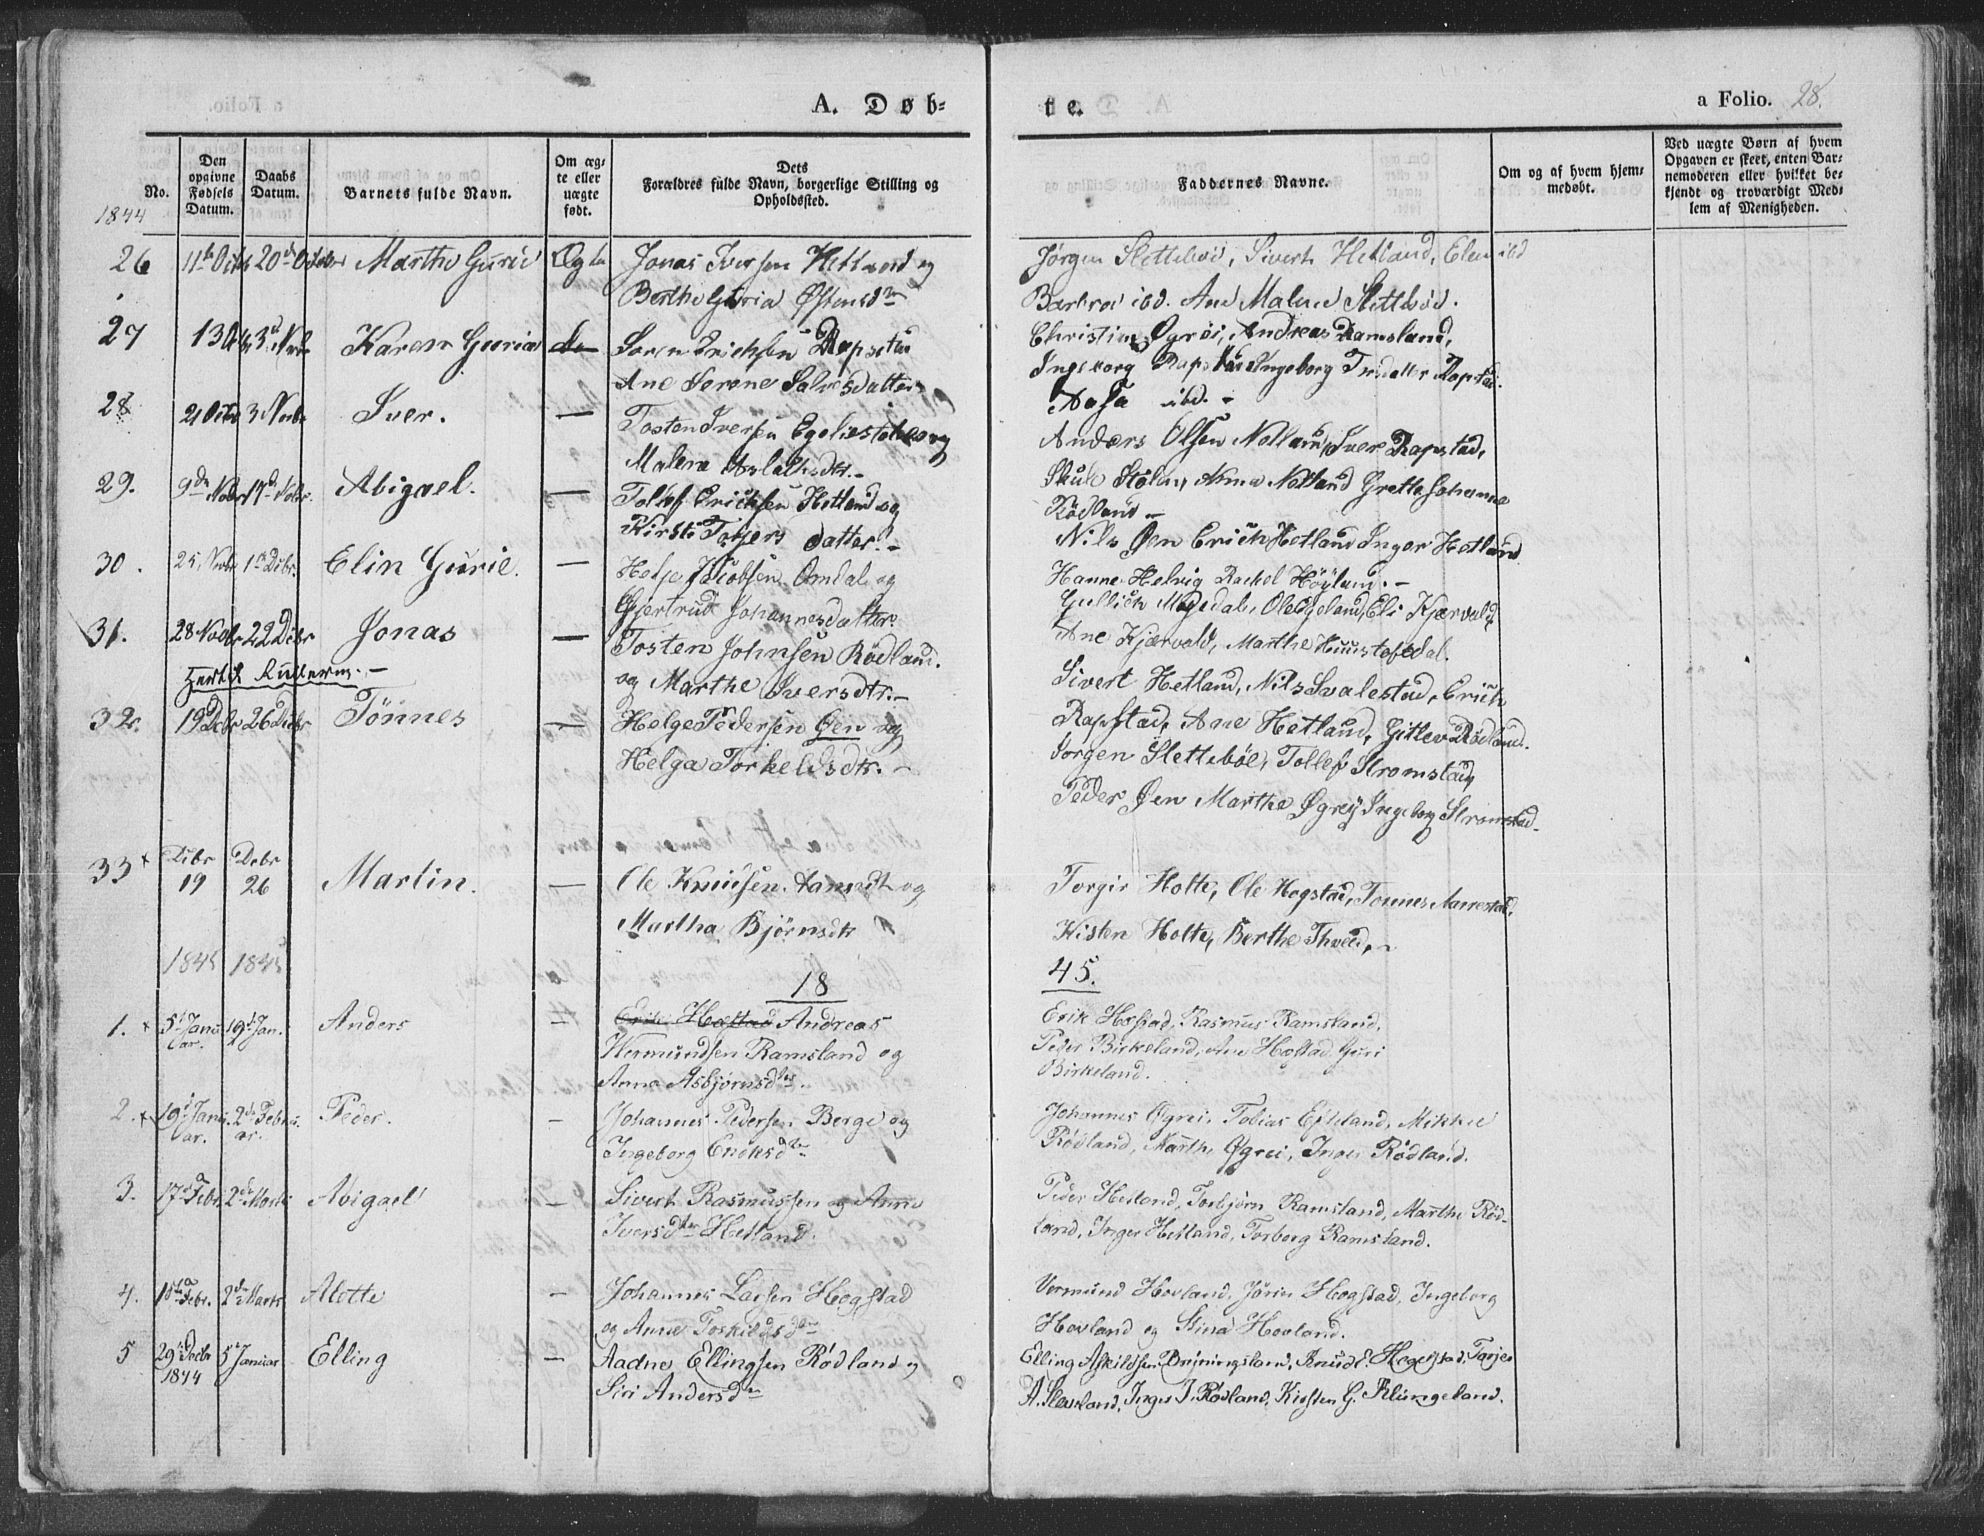 A. Døb-
te.
a Folio. 28.
No.
Den opgivne Fødsels Datum.
Daabs Datum.
Barnets fulde Navn.
Om æg-
te eller
uægte
født.
Dets
Forældres fulde Navn, borgerlige Stilling og
Opholdssted.
Faddernes Navne.
Om og af hvem hjem-
medøbt.
Ved uægte Børn af hvem
Opgaven er skeet, enten Bar-
nemoderen eller hvilket be-
kjendt og troværdigt Med-
lem af Menigheden.
1844
26 11te Octbr 20de October Marthe Gurie Ægte Jonas Iversen Hetland og
Berthe Guria Østensdtr
Jørgen Slettebøe, Sivert Hetland, Elen ibd
Barbroe ibd. Ane Malene Slettebøe.
27 3 Novbr Karen Guria do Søren Erichsen Rapstad
Ane Serene Salvesdatter
Christian Øgrei, Andreas Ramsland,
Ingeborg Rapstad Ingeborg Rapstad.
Aasa ibd. -
28 2 Octbr 3 Novbr Iver. — Tosten Iversen og
Malene Aslaksdtr. -
Anders Olsen Netland, Iver Rapstad,
Skule Anna Netland Grette Johanne
Rödland -
29. 9de Novbr 17de Novbr. Abigael. — Tollef Erichsen Hetland og
Kirsti Tarjers datter. -
Nils Øen Erich Hetland Inger Hetland
Hanne Helvig Rachel Höyland. -
30. 25 Novbr 1ste Decbr. Elin Gurie. — Helje Jacobsen Omdal og
Gjertrud Johannesdatter
Gullich Mydedal, Ole Egeland, Eli Kjærvald,
Ane Kjærvald, Marthe
31. 28 Novbr 22 Decbr Jonas — Tosten Johnsen Rödland.
og Marthe Iversdtr. -
Sivert Hetland, Nils Svalestad, Erich
Rapstad, Ane Hetland, Gitlev Rødland.
32. 19 Decbr 26 Decbr Tönnes — Helge Pedersen Øen og
Helga Torkelsdtr. -
Jorgen Slettebøe, Tollef Stromstad,
Peder Øen Marthe Øgrey Ingeborg Stromstad.
33 Decbr 19 Debr 26 Martin. — Ole Knudsen og
Martha Bjørnsdtr
Torgir Holte, Ole Hegstad, Tonnes Aarrestad,
Kisten Holte, Berthe
1845 1845
18
45.
1. 5te Januar. 19de Jan. Anders — Erik Hæstad Andreas
Wermundsen Ramsland og
Anna Asbjørnsdter.
Erik Hæstad, Rasmus Ramsland,
Peder Birkeland, Ane Hæstad, Guri
Birkeland.
2. 19de Januar. 2de Februar. Peder. — Johannes Pedersen Berge og
Ingeborg
Johannes Øgrei, Tobias Efteland, Mikkel
Rödland, Marthe Øgrei, Inger Rödland.
3. 17de Febr. 2de Marts Abigael — Sivert Rasmussen og Anne
Iversdter Hetland.
Peder Hetland, Torbjørn Ramsland, Marthe Rød-
land, Inger Hetland, Torborg Ramsland.
4. Febr. 2de Marts Alette — Johannes Larsen Hegstad
og Anne
Vermund Hovland, Jörin Hegstad, Ingeborg
Hovland og Stina Hovland.
5 29de Decbr 1844 5te Januar Elling — Aadne Ellingsen Rødland og
Siri Andersdtr
Elling Askildsen Bryningsland, Knud E. Hegestad, Tarjer
A. Slevland, Inger J. Rødland, Kirsten G. Klungeland.